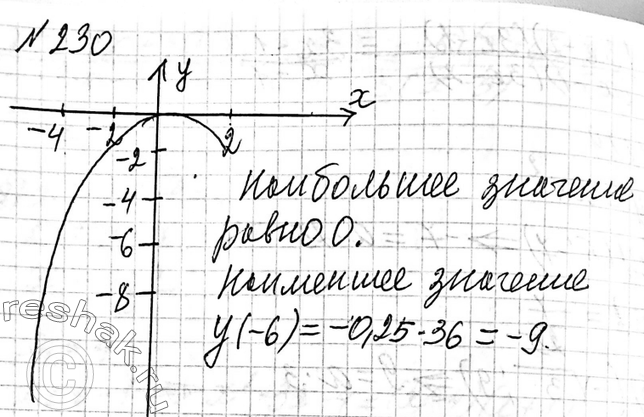 №230
y
x
-4 -2 2
-2
-4
-6
-8
Наибольшее значение
равно 0.
Наименшее значение
y(-6)=-0,25·36=-9.
© reshak.ru